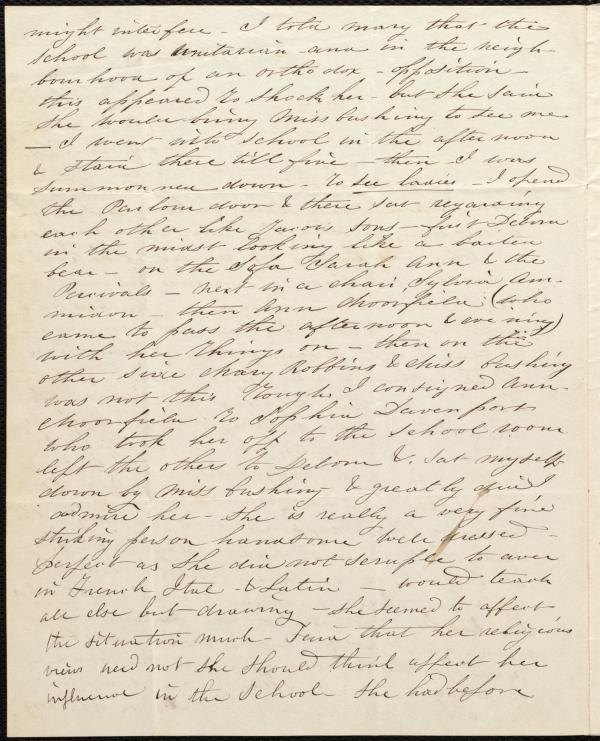 might interfere - I told mary that the
school was Unitarian - and in the neigh-
bourhood of an orthodox - opposition -
this appeared to shock her - but she said
she would bring Miss Cushing to see me
- I went into school in the afternoon
& staid there till five - then I was
summonned down - to see ladies - I opened
the Parlour door & there sat regarding
each other like Jacob's sons - first Debora
in the midst looking like a baited
bear - on the Sofa Sarah Ann & the
Percivals - next in a chair Sylvia Am-
midon - then Ann Moorfield (who
came to pass the afternoon & evening)
with her things on - then on the
other side Mary Robbins & Miss Cushing
was not this tough I consigned Ann
Moorfield to Sophia Davenport
who took her off to the school room
left the others to Debora & sat myself
down by Miss Cushing & greatly did I
admire her - She is really a very fine
striking person handsome well dressed -
perfect as she did not scruple to aver
in French, Ital - & Latin - would teach
all else but drawing - She seemed to affect
the situation much - Said that her religious
views need not she should think affect her
influence in the School - She had before